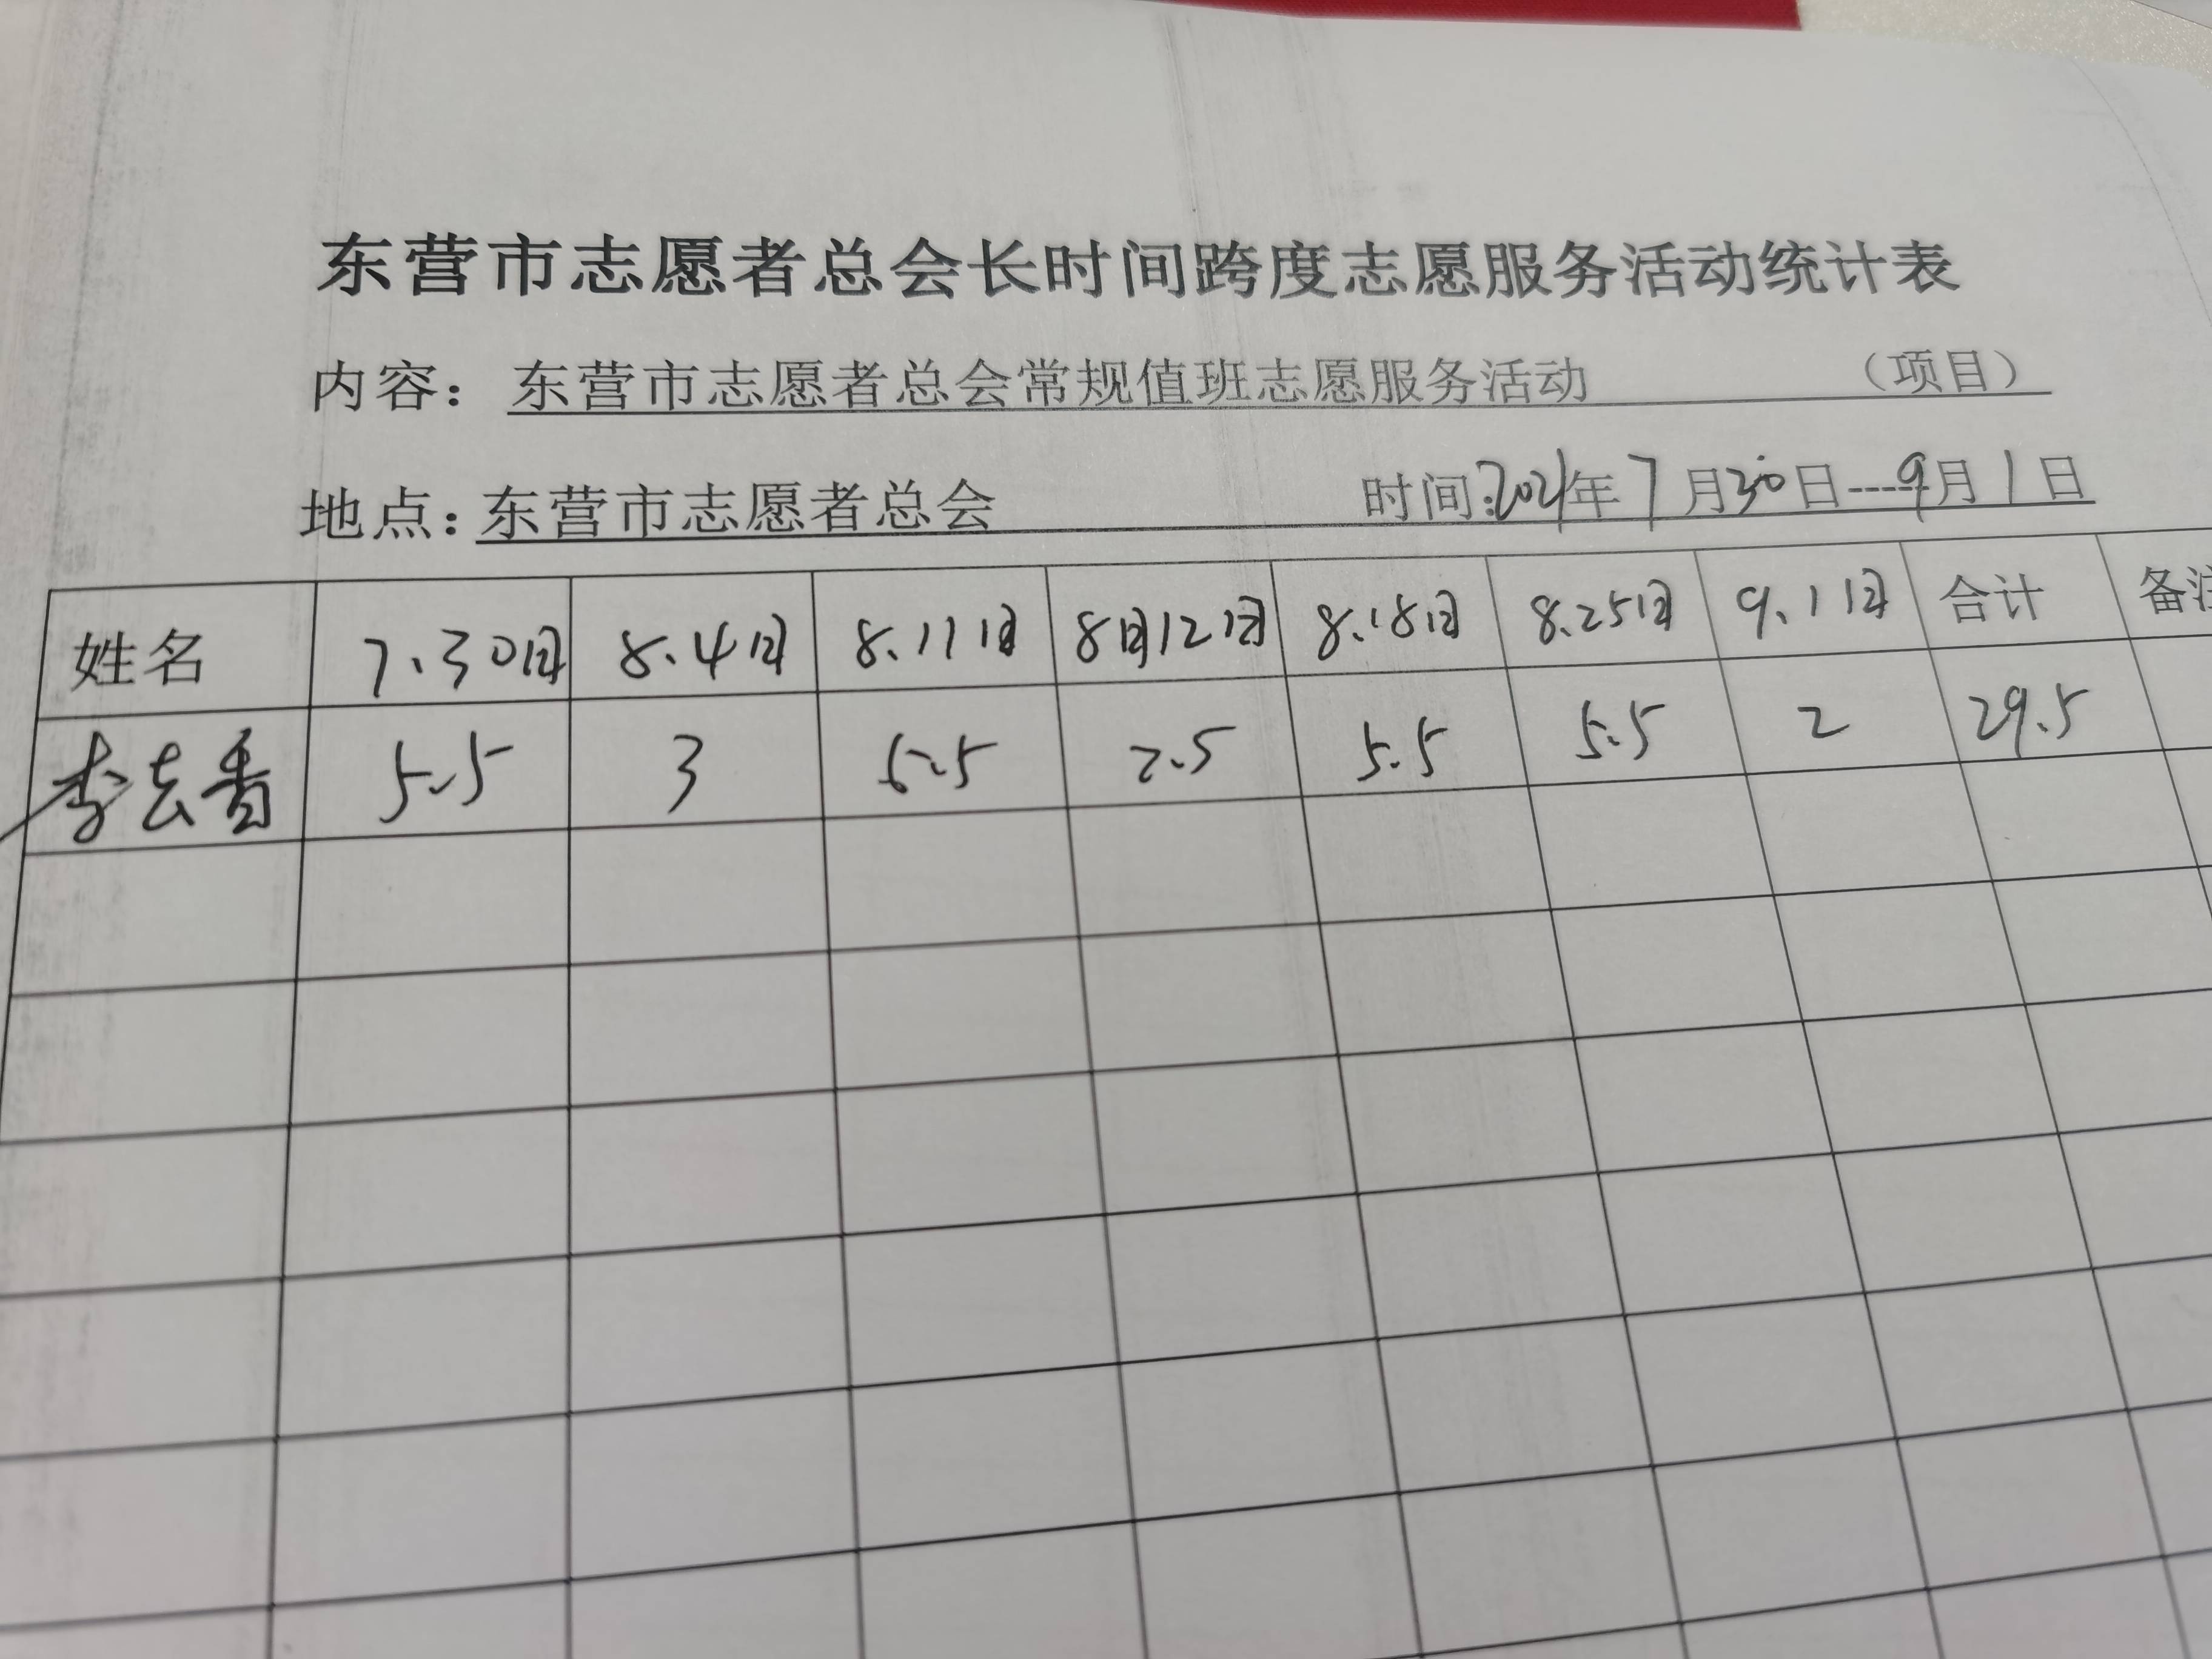 东营市志愿者总会长时间跨度志愿服务活动统计表
内容：东营市志愿者总会常规值班志愿服务活动 （项目）
地点：东营市志愿者总会 时间：2021年7月30日---9月1日
姓名 7.30日 8.4日 8.11日 8月12日 8.18日 8.25日 9.1日 合计 备注
李云香 5.5 3 5.5 2.5 5.5 5.5 2 29.5